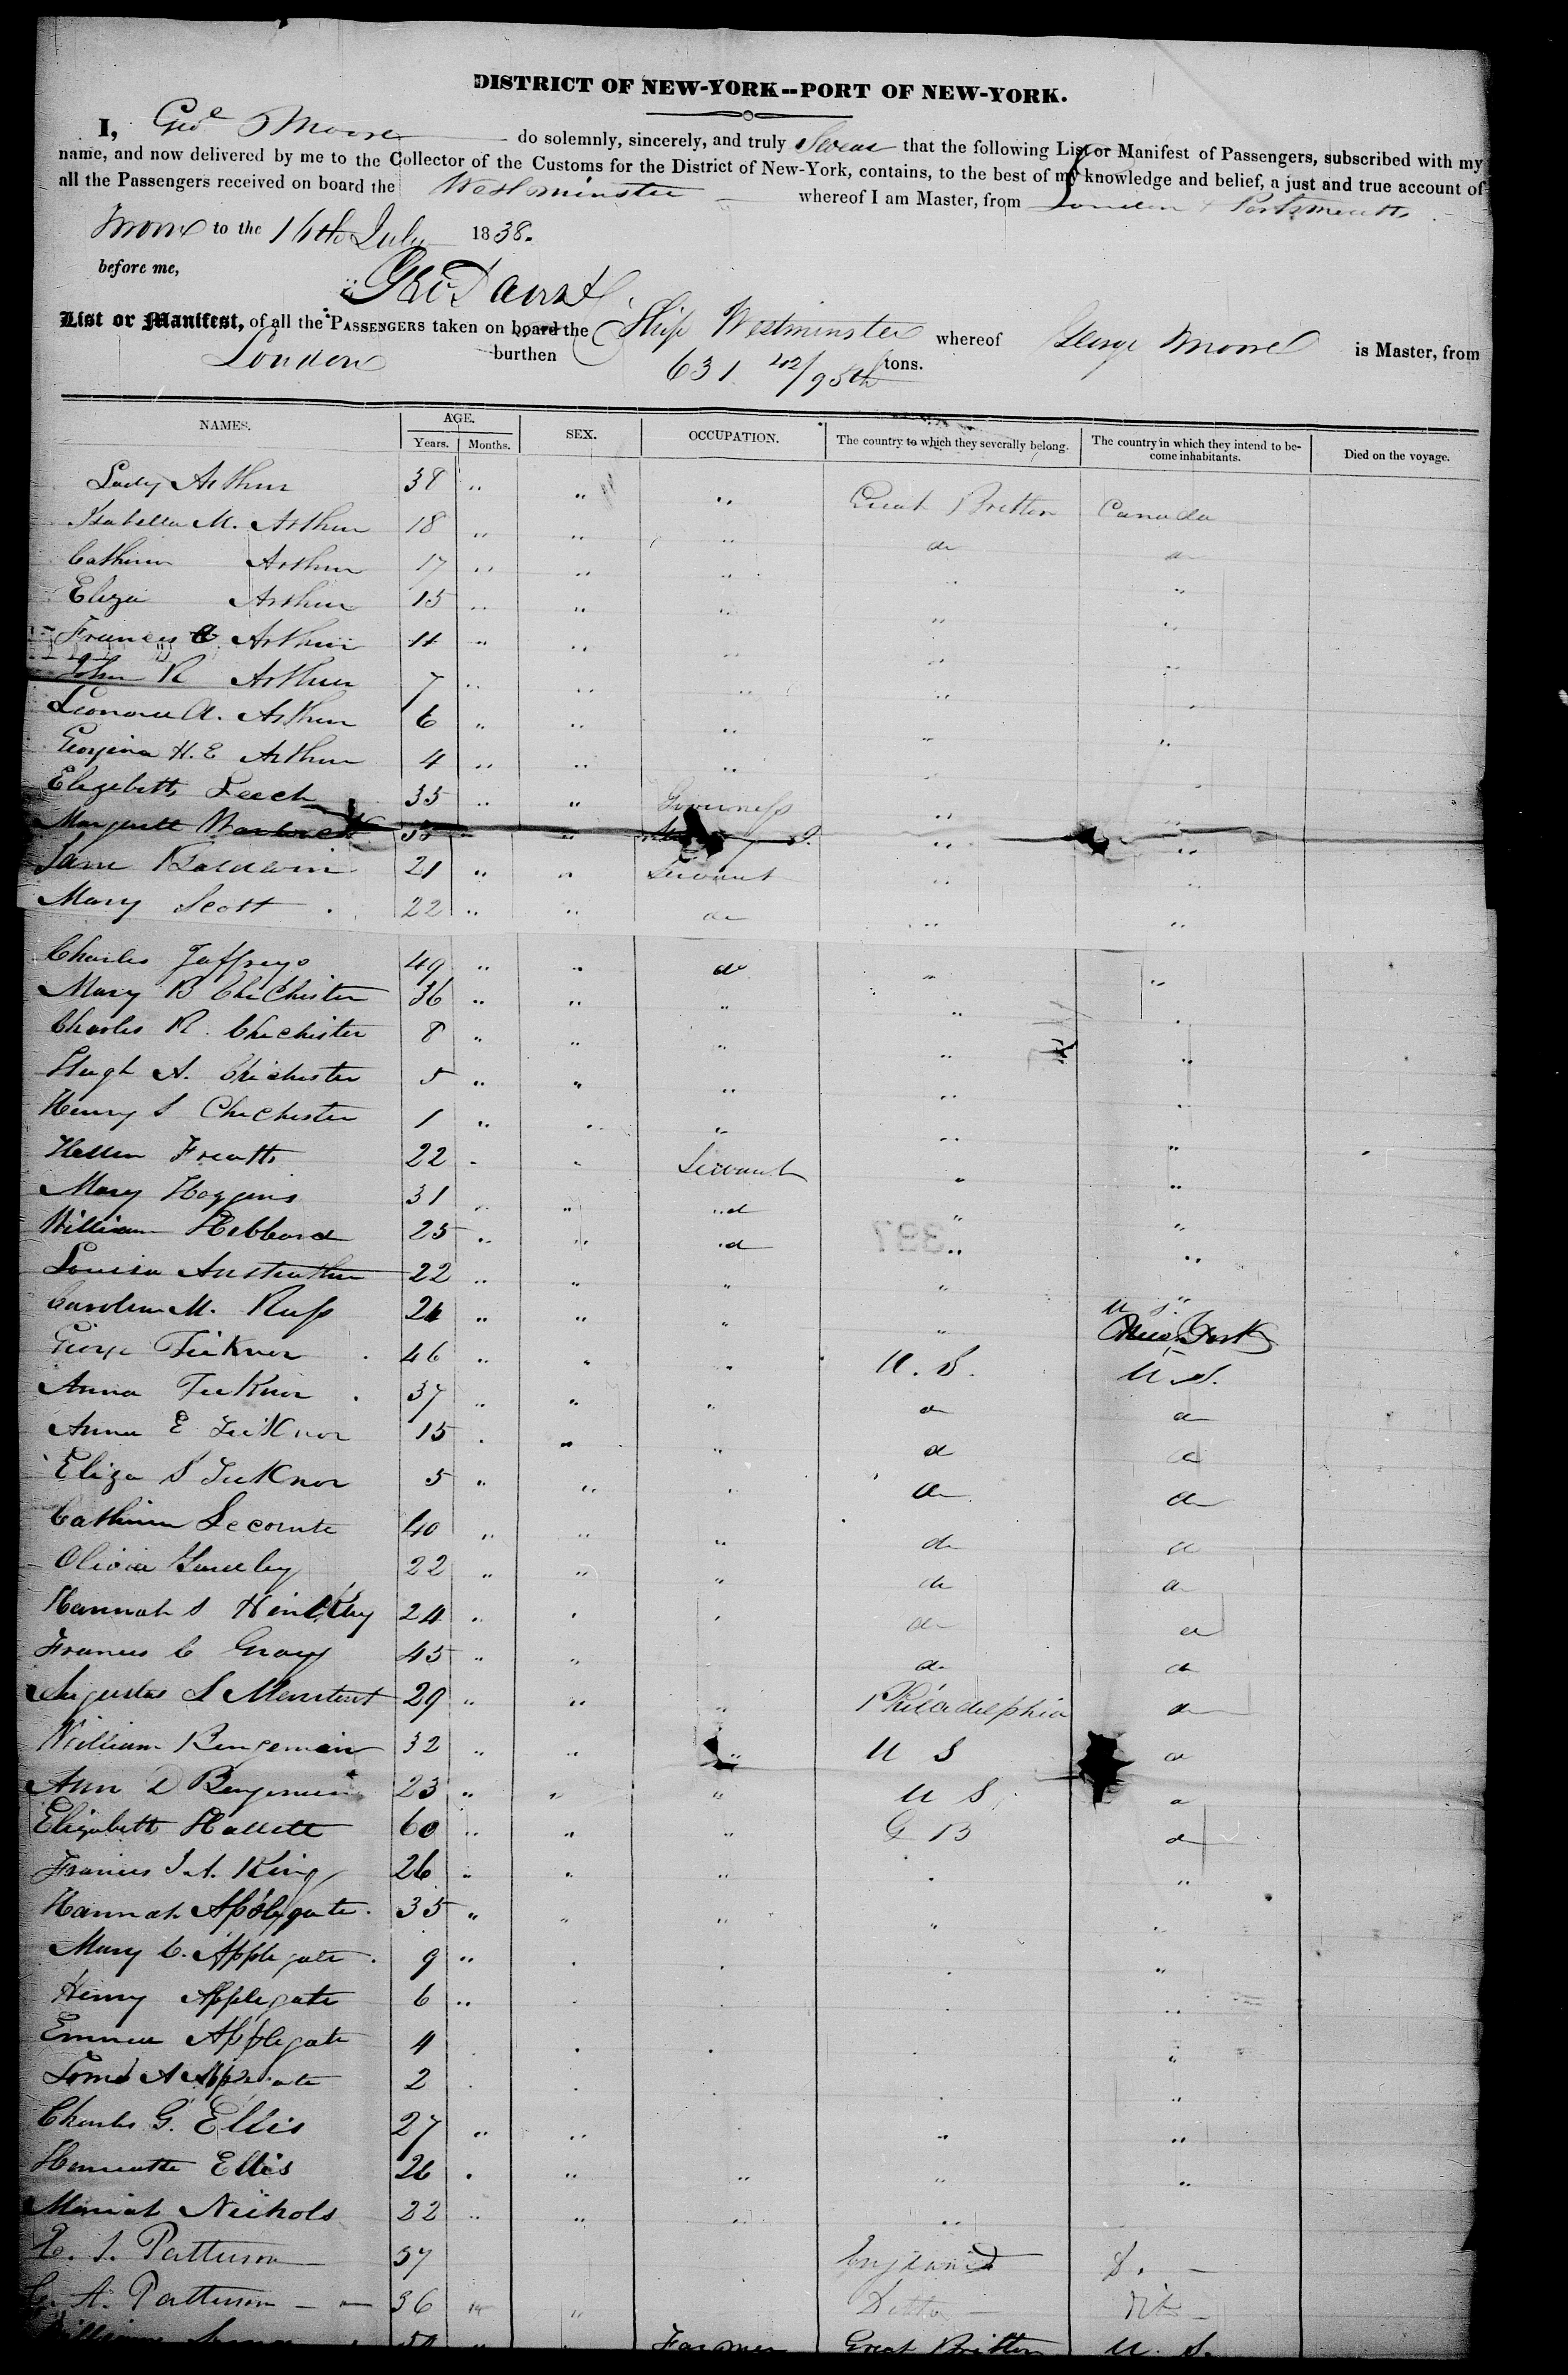 DISTRICT OF NEW-YORK--PORT OF NEW-YORK.
I, Geo Moore do solemnly, sincerely, and truly Swear that the following List or Manifest of Passengers, subscribed with my
name, and now delivered by me to the Collector of the Customs for the District of New-York, contains, to the best of my knowledge and belief, a just and true account of
all the Passengers received on board the Westminster whereof I am Master, from London & Portsmouth
to the 16th July 1838.
before me,
List or Manifest, of all the PASSENGERS taken on board the Ship Westminster whereof George Moore is Master, from
London burthen 631 42/95th tons.
NAMES. AGE. Years. Months. SEX. OCCUPATION. The country to which they severally belong. The country in which they intend to become inhabitants. Died on the voyage.
Lady Arthur 38 " " " Great Britton Canada
Isabella M. Arthur 18 " " " do do
Catherine Arthur 17 " " " " "
Eliza Arthur 15 " " " " "
Frances Arthur 11 " " " " "
John R Arthur 7 " " " " "
Leonora A. Arthur 6 " " " " "
Georgina H. E Arthur 4 " " " " "
Elizabeth Leech 35 " " Governess " "
Margarett " " " "
Jane Baldwin 21 " " Servant " "
Mary Scott 22 " " do " "
Charles Jaffreys 49 " " do " "
Mary B Chichester 36 " " " " "
Charles R. Chichester 8 " " " " "
Hugh A. Chichester 5 " " " " "
Henry S Chichester 1 " " " " "
Hellen 22 " " Servant " "
Mary Hoggins 31 " " do " "
William Hebbard 25 " " do " "
Louisa Anstruther 22 " " " " "
Caroline M. Russ 24 " " " " U S. New York
George Ticknor 46 " " " U. S. U. S.
Anna Ticknor 37 " " " do do
Anna E Ticknor 15 " " " do do
Eliza S Ticknor 5 " " " do do
Catherine Lecomte 40 " " " do do
Olivia 22 " " " do do
Hannah S Hinckley 24 " " " do do
Francis C Gray 45 " " do do
Augustus S 29 " " " Philadelphia do
William Bengemin 32 " " " U S do
Ann D Bengemin 23 " " " U S do
Elizabeth Hallett 60 " " " G B do
Francis J. A. King 26 " " " " "
Hannah Applegate 35 " " " " "
Mary C. Applegate 9 " " " " "
Henry Applegate 6 " " " " "
Emma Applegate 4 " " "
A Applegate 2 " "
Charles G. Ellis 27 " " " "
Ellis 26 " " " " "
Nichols 22 " " " "
Patterson 37 England
A. Patterson 36 " Ditto Dito
William Farmer Great Britton U. S.